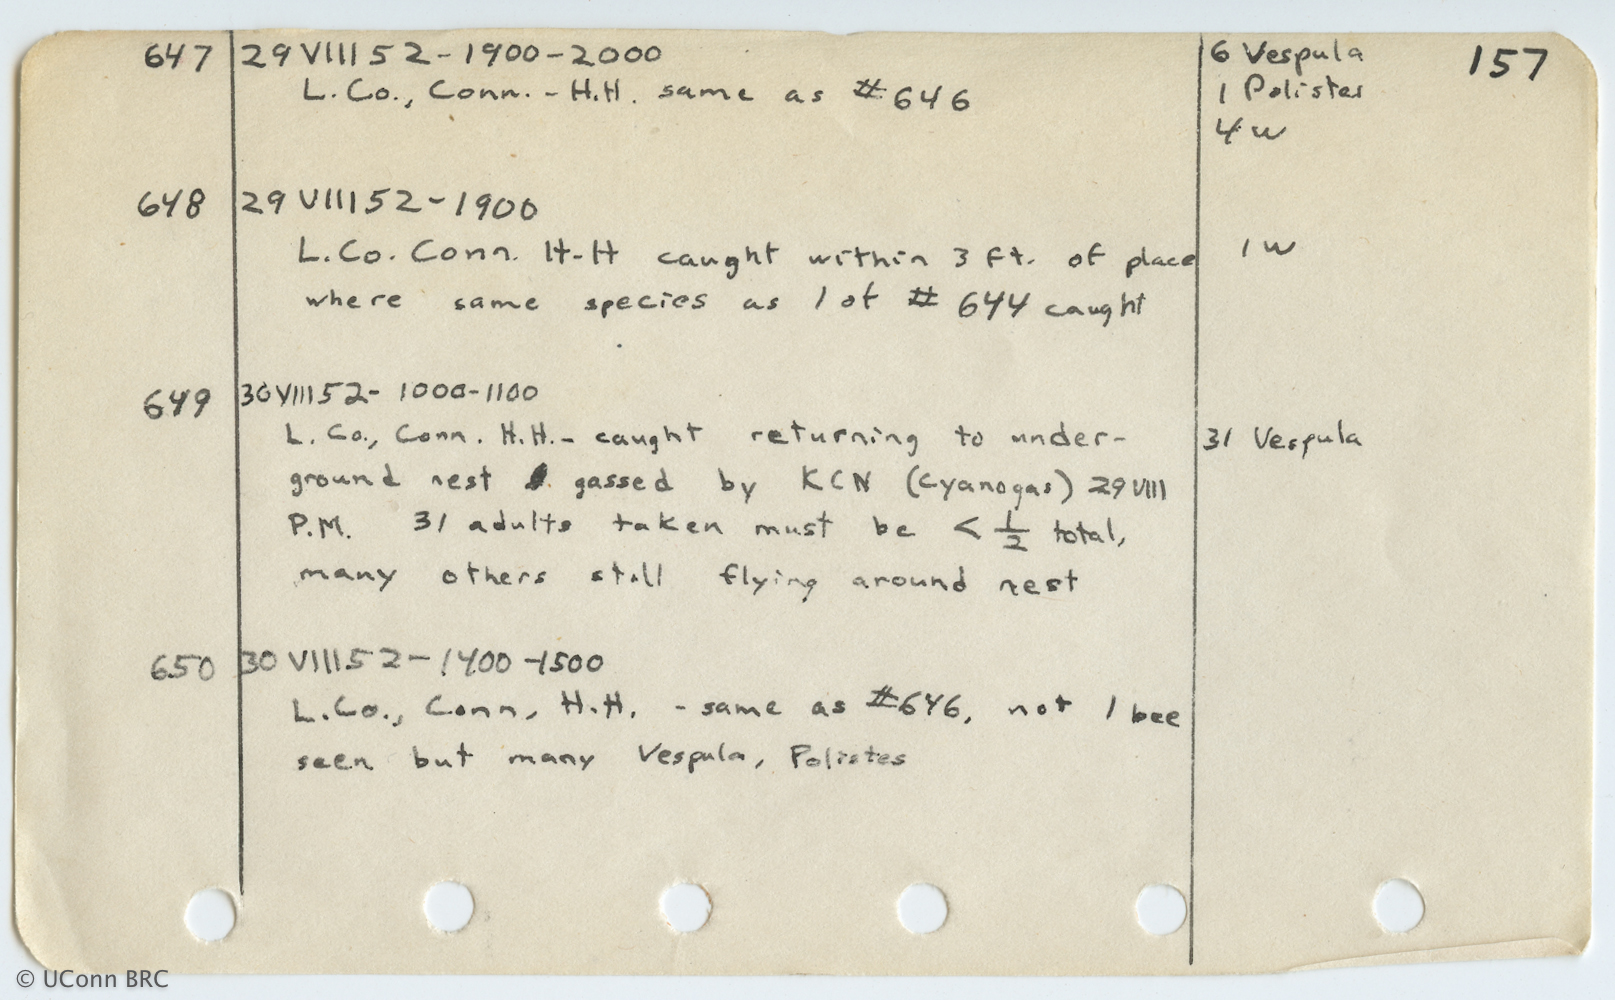 157
647 29 VIII 52 - 1900 - 2000 6 Vespula
L. Co., Conn. - H.H. same as #646 1 Polistes
4 w
648 29 VIII 52 - 1900
L. Co. Conn. H-H caught within 3 ft. of place 1 w
where same species as 1 of # 644 caught
649 30 VIII 52 - 1000-1100
L. Co., Conn. H.H. - caught returning to under- 31 Vespula
ground nest gassed by KCN (Cyanogas) 29 VIII
P.M. 31 adults taken must be < 1/2 total,
many others still flying around nest
650 30 VIII 52 - 1400 - 1500
L. Co., Conn, H.H. - same as #646, not 1 bee
seen but many Vespula, Polistes
© UConn BRC